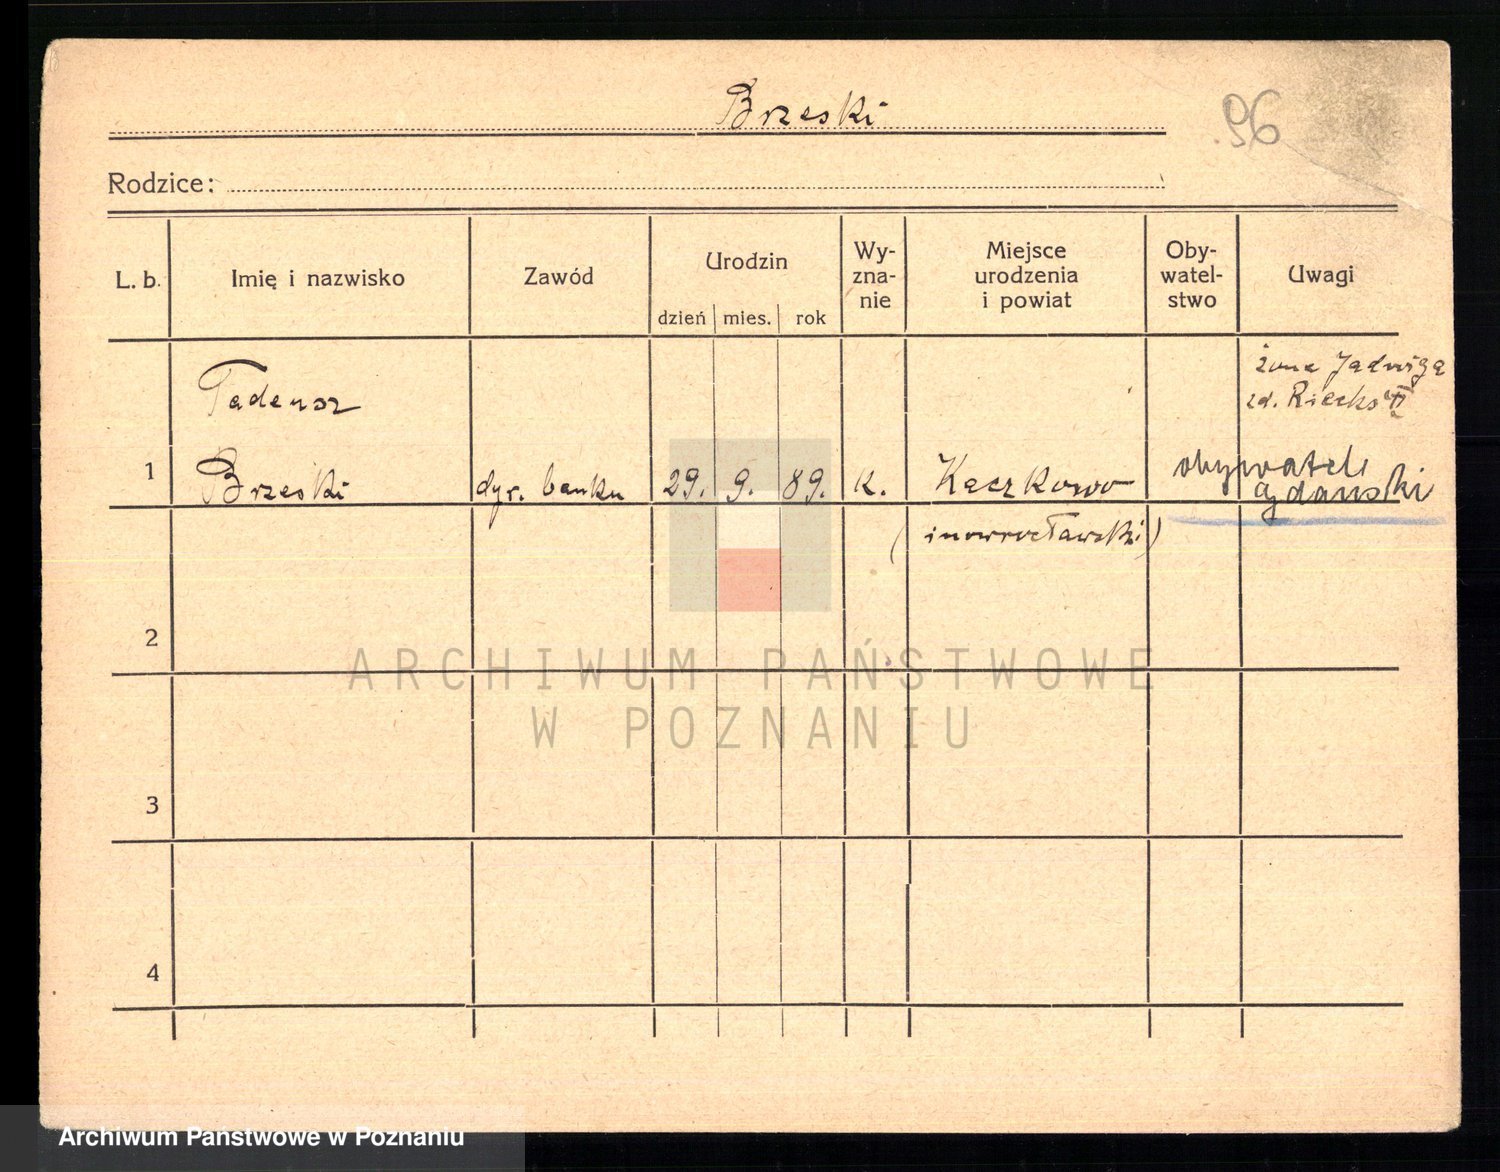 Brzeski
96
Rodzice:
L. b.
Imię i nazwisko
Zawód
Urodzin
dzień
mies.
rok
Wy-
zna-
nie
Miejsce
urodzenia
i powiat
Oby-
watel-
stwo
Uwagi
żona Jadwiga
zd.
Tadeusz
1
Brzeski
dyr. banku
29.
9.
89.
K.
Kaczkowo
obywatel
gdański
(inowrocławski)
2
ARCHIWUM PAŃSTWOWE
W POZNANIU
3
4
Archiwum Państwowe w Poznaniu